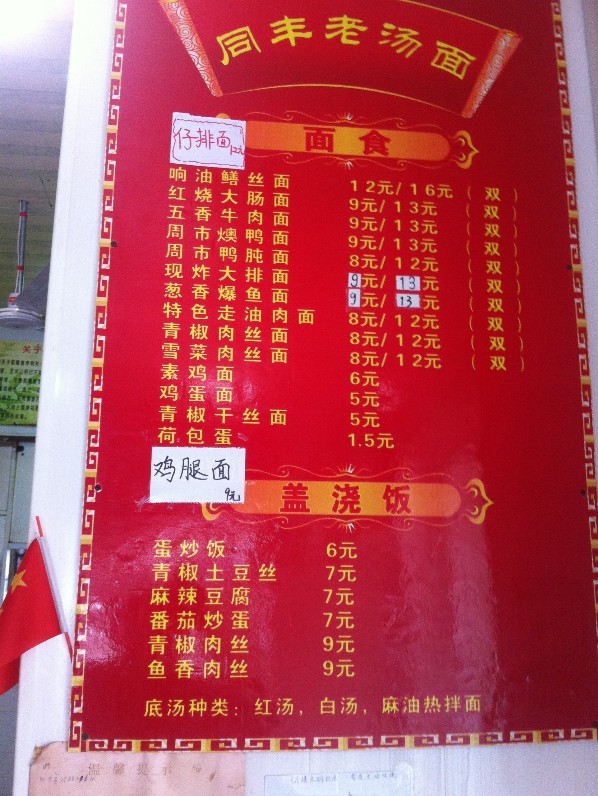 同丰老汤面
仔排面 12元
面食
响油鳝丝面 12元/16元（双）
红烧大肠面 9元/13元（双）
五香牛肉面 9元/13元（双）
周市燠鸭面 9元/13元（双）
周市鸭肫面 8元/12元（双）
现炸大排面 9元/13元（双）
葱香爆鱼面 9元/13元（双）
特色走油肉面 8元/12元（双）
青椒肉丝面 8元/12元（双）
雪菜肉丝面 8元/12元（双）
素鸡面 6元
鸡蛋面 5元
青椒干丝面 5元
荷包蛋 1.5元
鸡腿面 9元
盖浇饭
蛋炒饭 6元
青椒土豆丝 7元
麻辣豆腐 7元
番茄炒蛋 7元
青椒肉丝 9元
鱼香肉丝 9元
底汤种类：红汤，白汤，麻油热拌面
温馨提示
关于